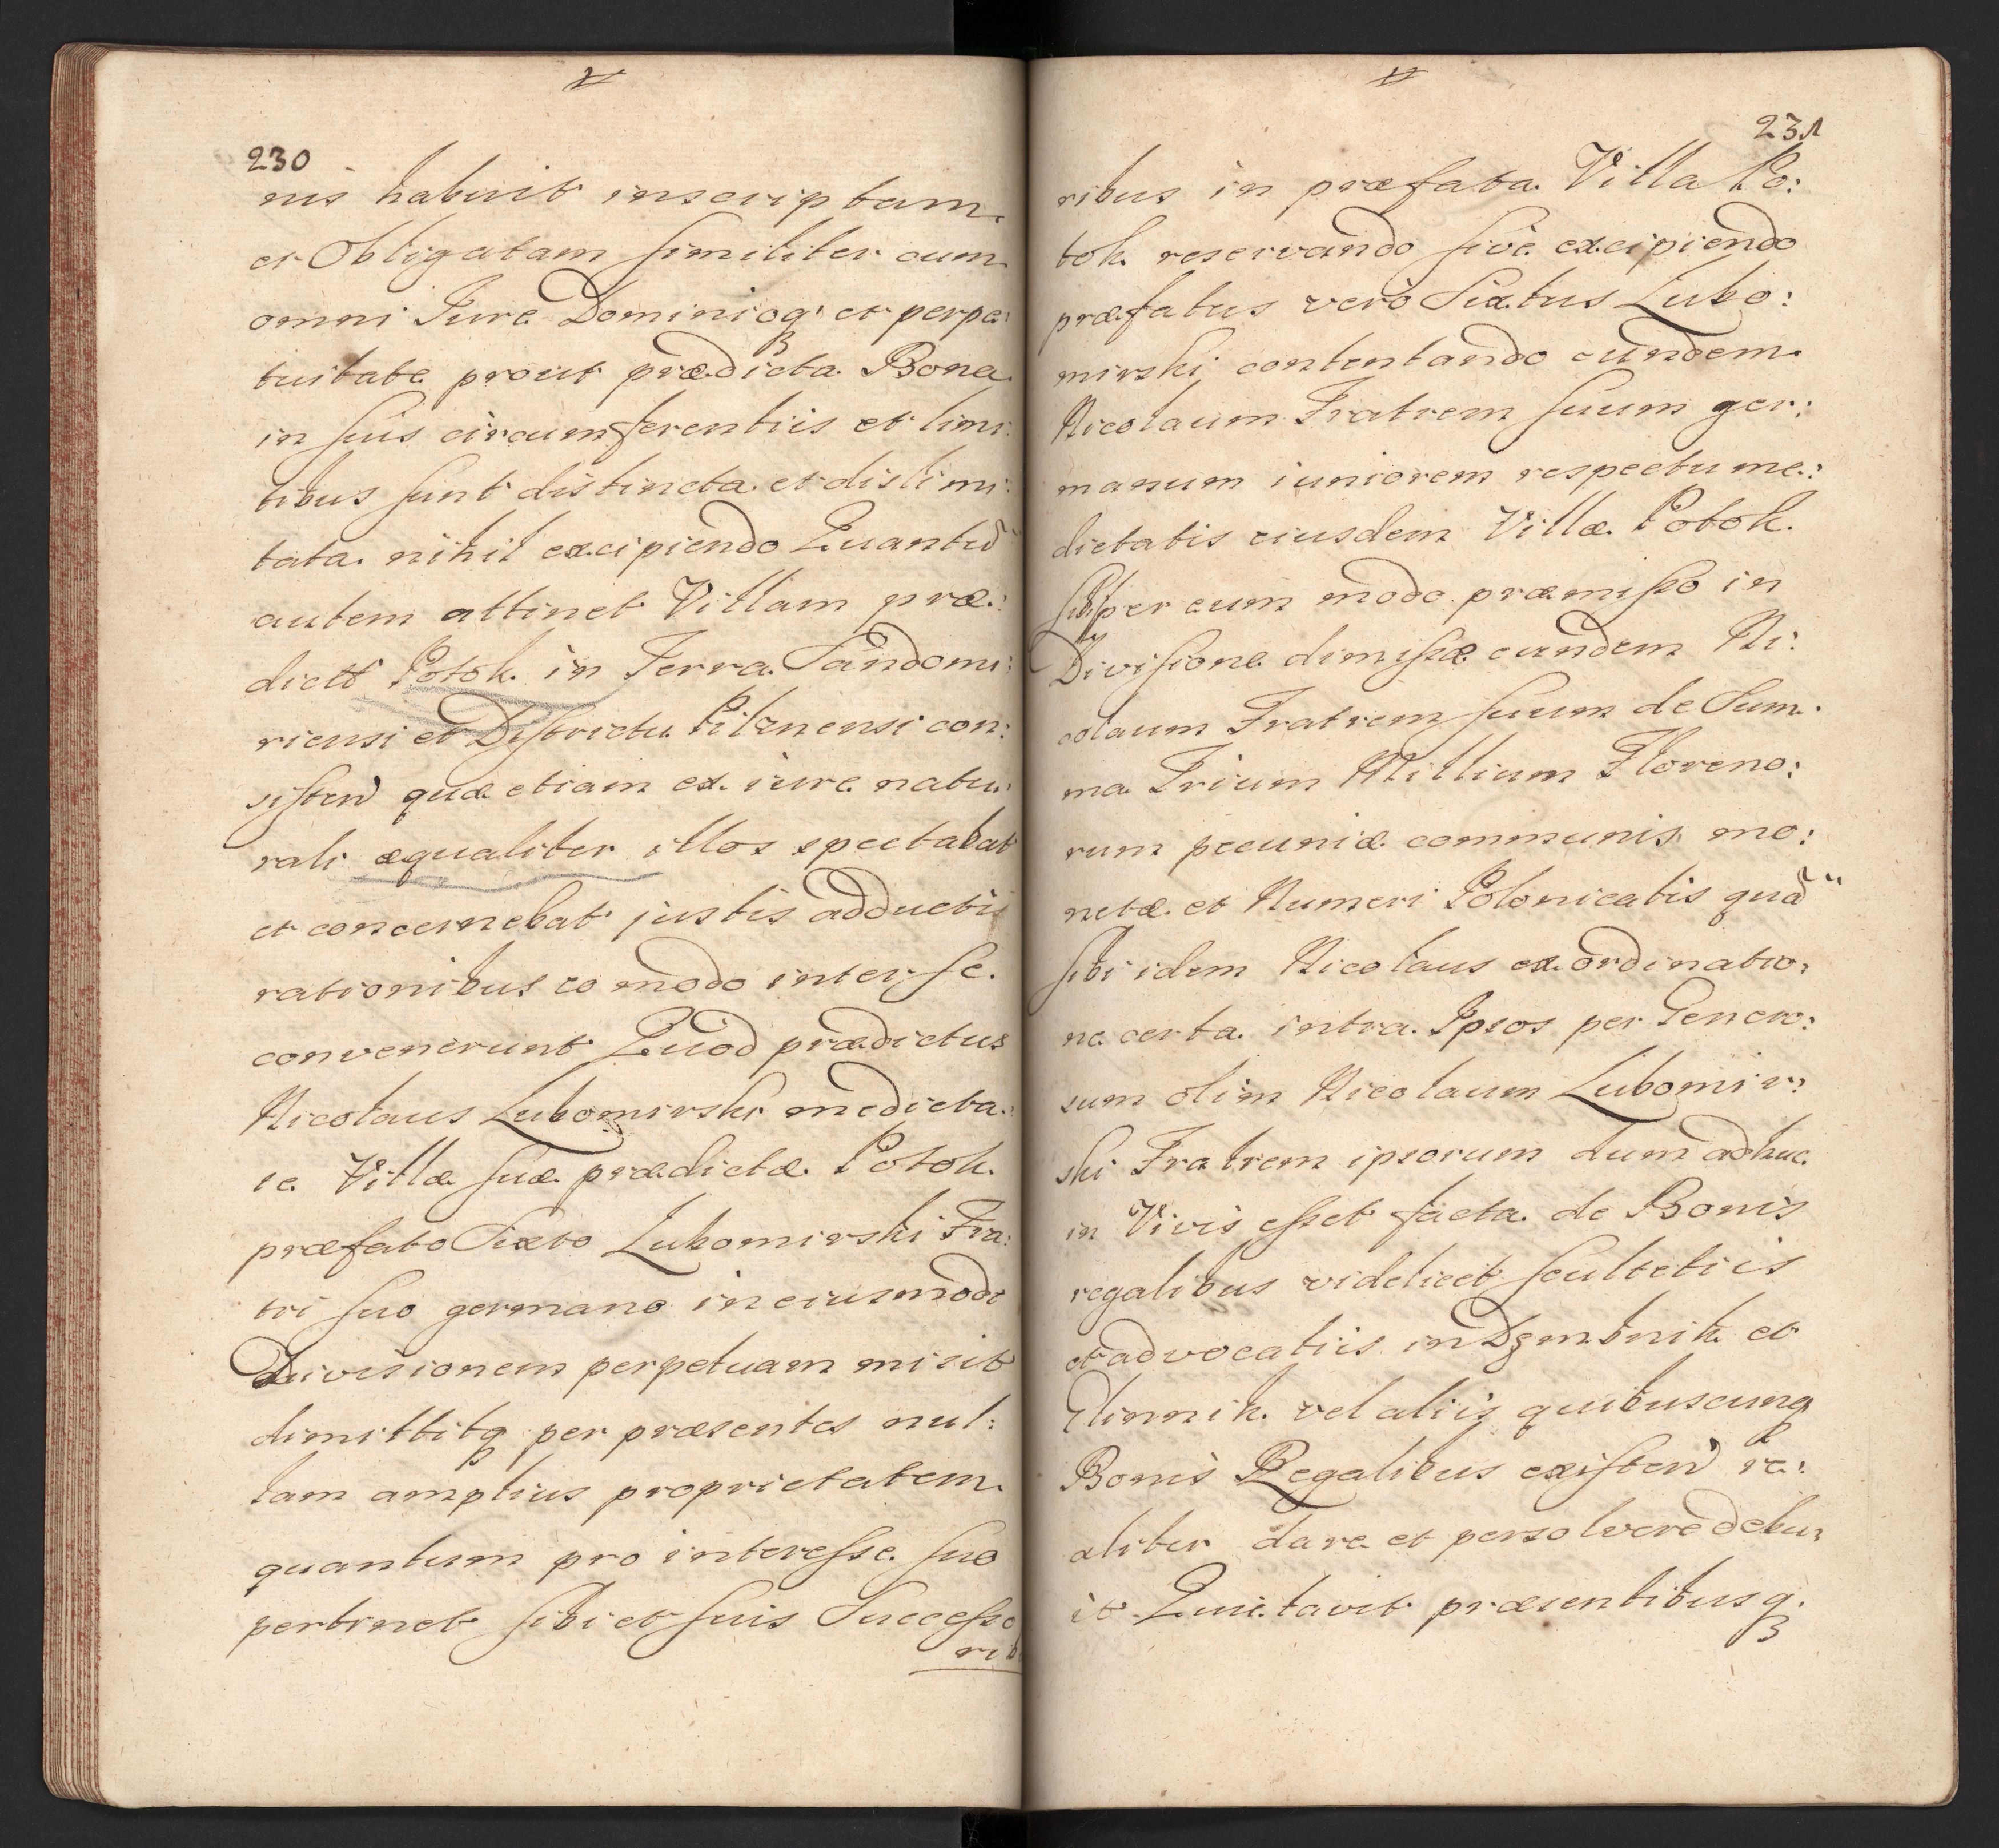 230
nis habuit inscriptam
et Obligatam similiter cum
omni Jure Dominioq; et perpe:
tuitate prout prædicta Bona
in suis circumferentiis et limi:
tibus sunt distincta et dislimi:
tata. nihil excipiendo Quantũ
autem attinet Villam præ:
dictã Potok in Terra Sandomi:
riensi et Districtu Pilznensi con:
sisten̄ quæ etiam ex iure natu:
rali æqualiter illos spectabat
et concernebat justis adductis
rationibus eo modo inter se
convenerunt Quod prædictus
Nicolaus Lubomirski medieta:
te Villæ suæ prædictæ Potok
præfato Sixto Lubomirski Fra:
tri suo germano in eiusmodi
Divisionem perpetuam misit
dimittitq; per præsentes nul:
lam amplius proprietatem
quantum pro interesse suo
pertinet sibi et suis Successo
rib
231
ribus in præfata Villa Po:
tok reservando sive excipiendo
præfatus vero Sixtus Lubo:
mirski contentando eundem
Nicolaum Fratrem suum ger:
manum iuniorem respectu me:
dietatis eiusdem Villæ Potok
super eum modo præmisso in
Divisione dimissæ eundem Ni:
colaum Fratrem suum de Sum:
ma Trium Millium Floreno:
rum pecuniæ communis mo:
netæ et Numeri Polonicalis quã
sibi idem Nicolaus ex ordinatio:
ne certa intra Ipsos per Genero:
sum olim Nicolaum Lubomir:
ski Fratrem ipsorum dum adhuc
in Vivis esset facta de Bonis
regalibus videlicet scultetiis
et advocatiis in Dgmbnik et
Glinnik vel aliis quibuscunq;
Bonis Regalibus existen̄ re:
aliter dare et persolvere debu:
it Quietavit præsentibusq;